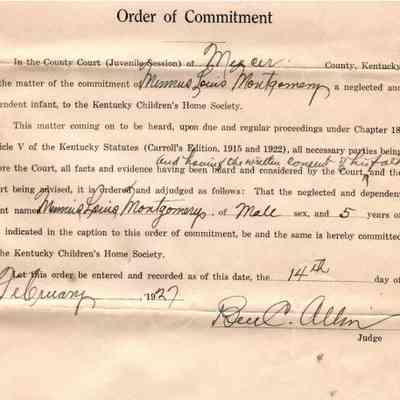 Order of Commitment
In the County Court (Juvenile Session) of Mercer County, Kentucky
the matter of the commitment of Minnus Louis Montgomery a neglected and
pendent infant, to the Kentucky Children's Home Society.
This matter coming on to be heard, upon due and regular proceedings under Chapter 18
ticle V of the Kentucky Statutes (Carroll's Edition, 1915 and 1922), all necessary parties being
and having the written consent of his
ore the Court, all facts and evidence having been heard and considered by the Court, and the
urt being advised, it is ordered and adjudged as follows: That the neglected and dependent
ant named Minnus Louis Montgomery, of Male sex, and 5 years of
indicated in the caption to this order of commitment, be and the same is hereby committed
the Kentucky Children's Home Society.
Let this order be entered and recorded as of this date, the 14th day of
February, 1927
Ben C. Allin
Judge